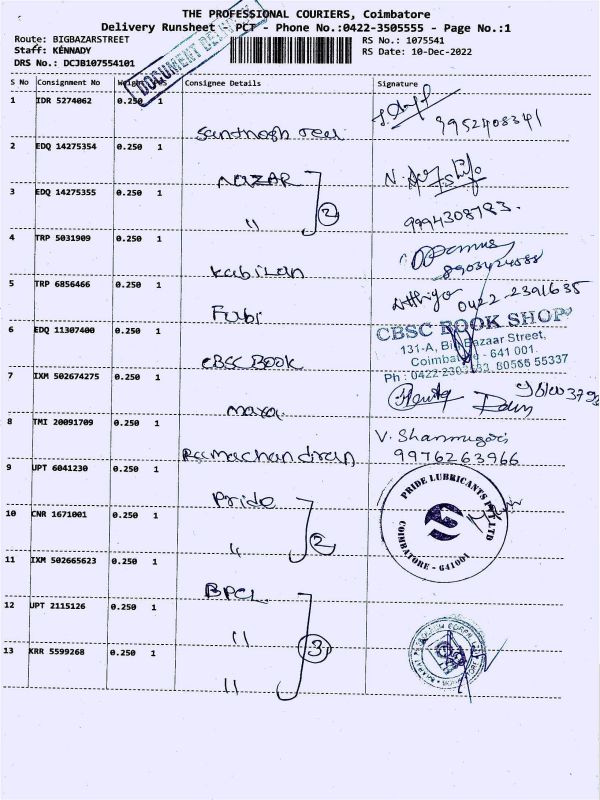 THE PROFESSIONAL COURIERS, Coimbatore
Delivery Runsheet - PCT - Phone No.:0422-3505555 - Page No.:1
Route: BIGBAZARSTREET
RS No.: 1075541
Staff: KENNADY
RS Date: 10-Dec-2022
DRS No.: DCJB107554101
DOCUMENT
S No Consignment No Weight Consignee Details Signature
1 IDR 5274062 0.250 1
Santhosh 9952408341
2 EDQ 14275354 0.250 1
NAZAR N.
3 EDQ 14275355 0.250 1
" 2 9994308783.
4 TRP 5031909 0.250 1
Kabilan 8903424588
5 TRP 6856466 0.250 1
Fubi 0422-2391635
6 EDQ 11307400 0.250 1
CBSC BOOK SHOP
131-A, Big Bazaar Street,
Coimbatore - 641 001.
CBSC BOOK
7 IXM 502674275 0.250 1
maya
8 TMI 20091709 0.250 1
V. Shanmugam
Ramachandran 9976263966
9 UPT 6041230 0.250 1
Pride
PRIDE LUBRICANTS PVT LTD
COIMBATORE - 641001
10 CNR 1671001 0.250 1
" 2
11 IXM 502665623 0.250 1
BPCL
12 UPT 2115126 0.250 1
" 3
13 KRR 5599268 0.250 1
"